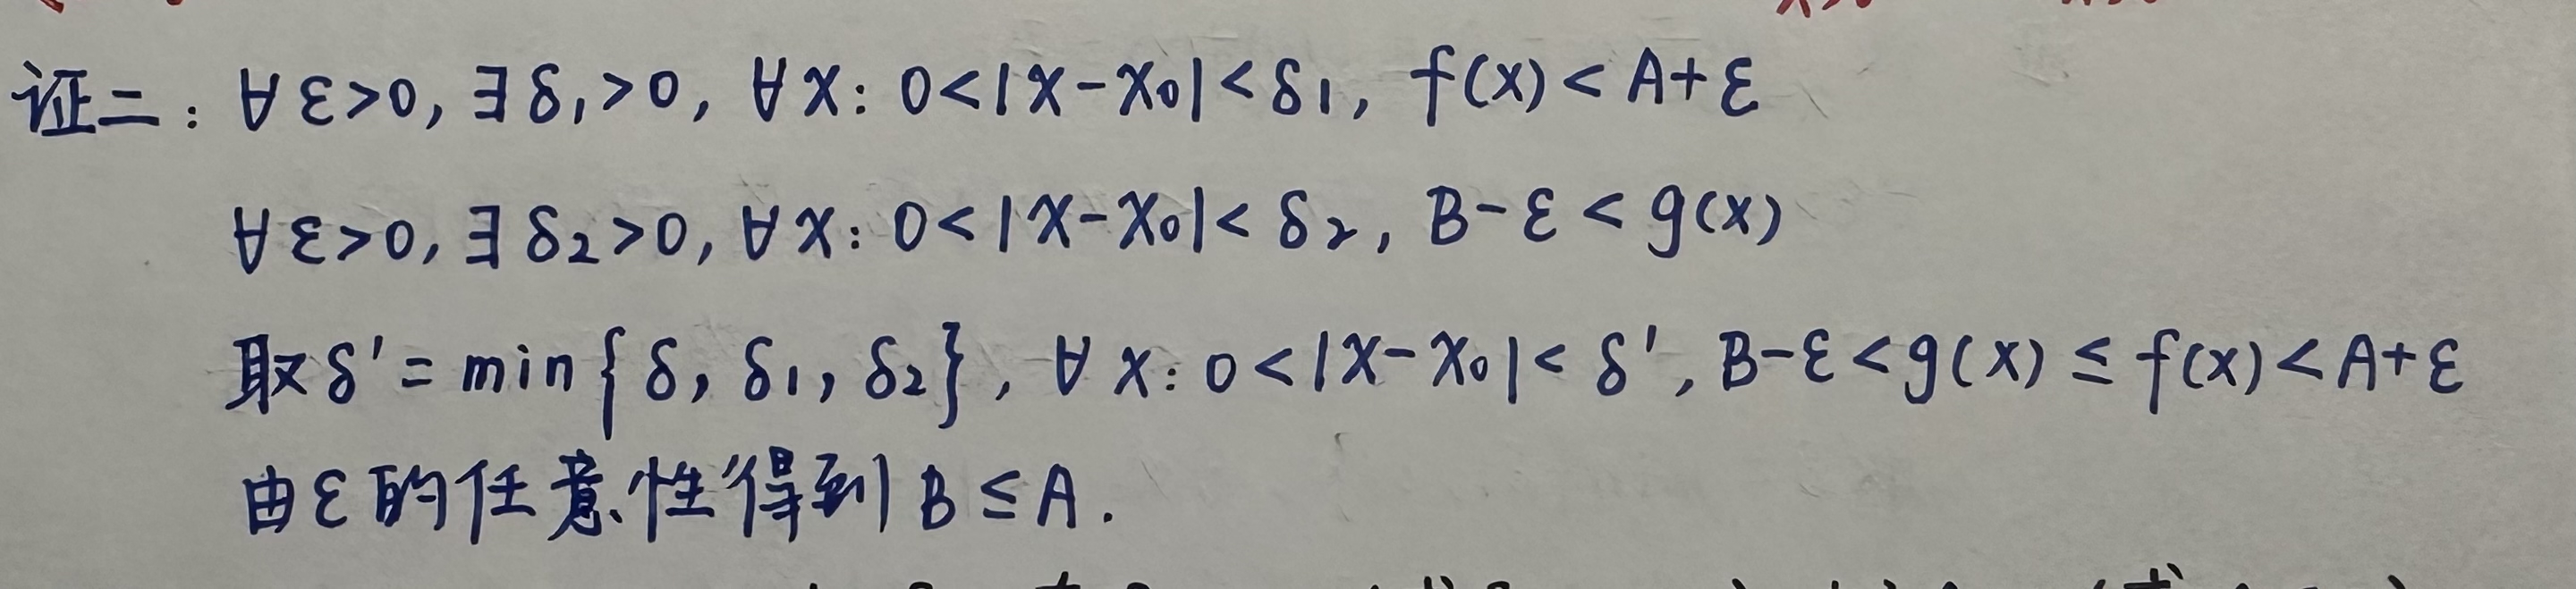 证二：∀ε>0, ∃δ₁>0, ∀x: 0<|x-x₀|<δ₁, f(x)<A+ε
∀ε>0, ∃δ₂>0, ∀x: 0<|x-x₀|<δ₂, B-ε<g(x)
取δ'=min{δ, δ₁, δ₂}, ∀x: 0<|x-x₀|<δ', B-ε<g(x)≤f(x)<A+ε
由ε的任意性得到B≤A.